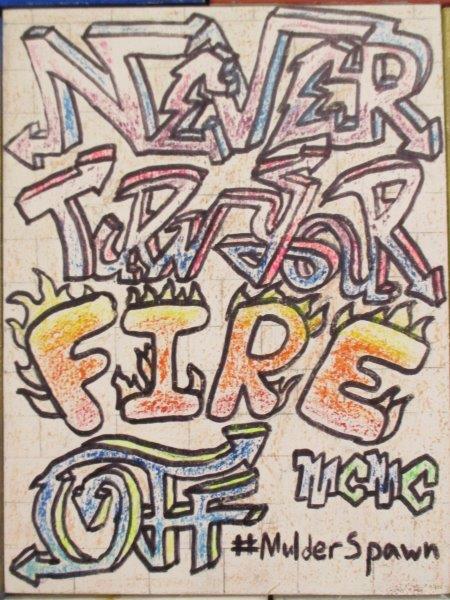 NEVER
TURN YOUR
FIRE
OFF MCMC
#MulderSpawn